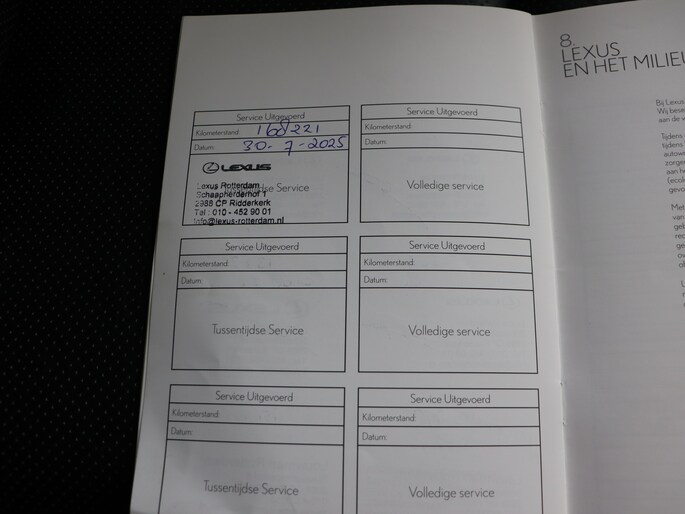 Service Uitgevoerd
Kilometerstand: 168221
Datum: 30-7-2025
LEXUS
Lexus Rotterdam
Schaapherderhof 1
2988 CP Ridderkerk
Tel : 010 - 452 90 01
info@lexus-rotterdam.nl
Service
Service Uitgevoerd
Kilometerstand:
Datum:
Volledige service
Service Uitgevoerd
Kilometerstand:
Datum:
Tussentijdse Service
Service Uitgevoerd
Kilometerstand:
Datum:
Volledige service
Service Uitgevoerd
Kilometerstand:
Datum:
Tussentijdse Service
Service Uitgevoerd
Kilometerstand:
Datum:
Volledige service
8.
LEXUS
EN HET MILIEU
Bij Lexus
Wij bese
aan de w
Tijdens
tijdens
autowr
zorger
aan he
(ecol
gevo
Met
van
geb
rec
ge
ov